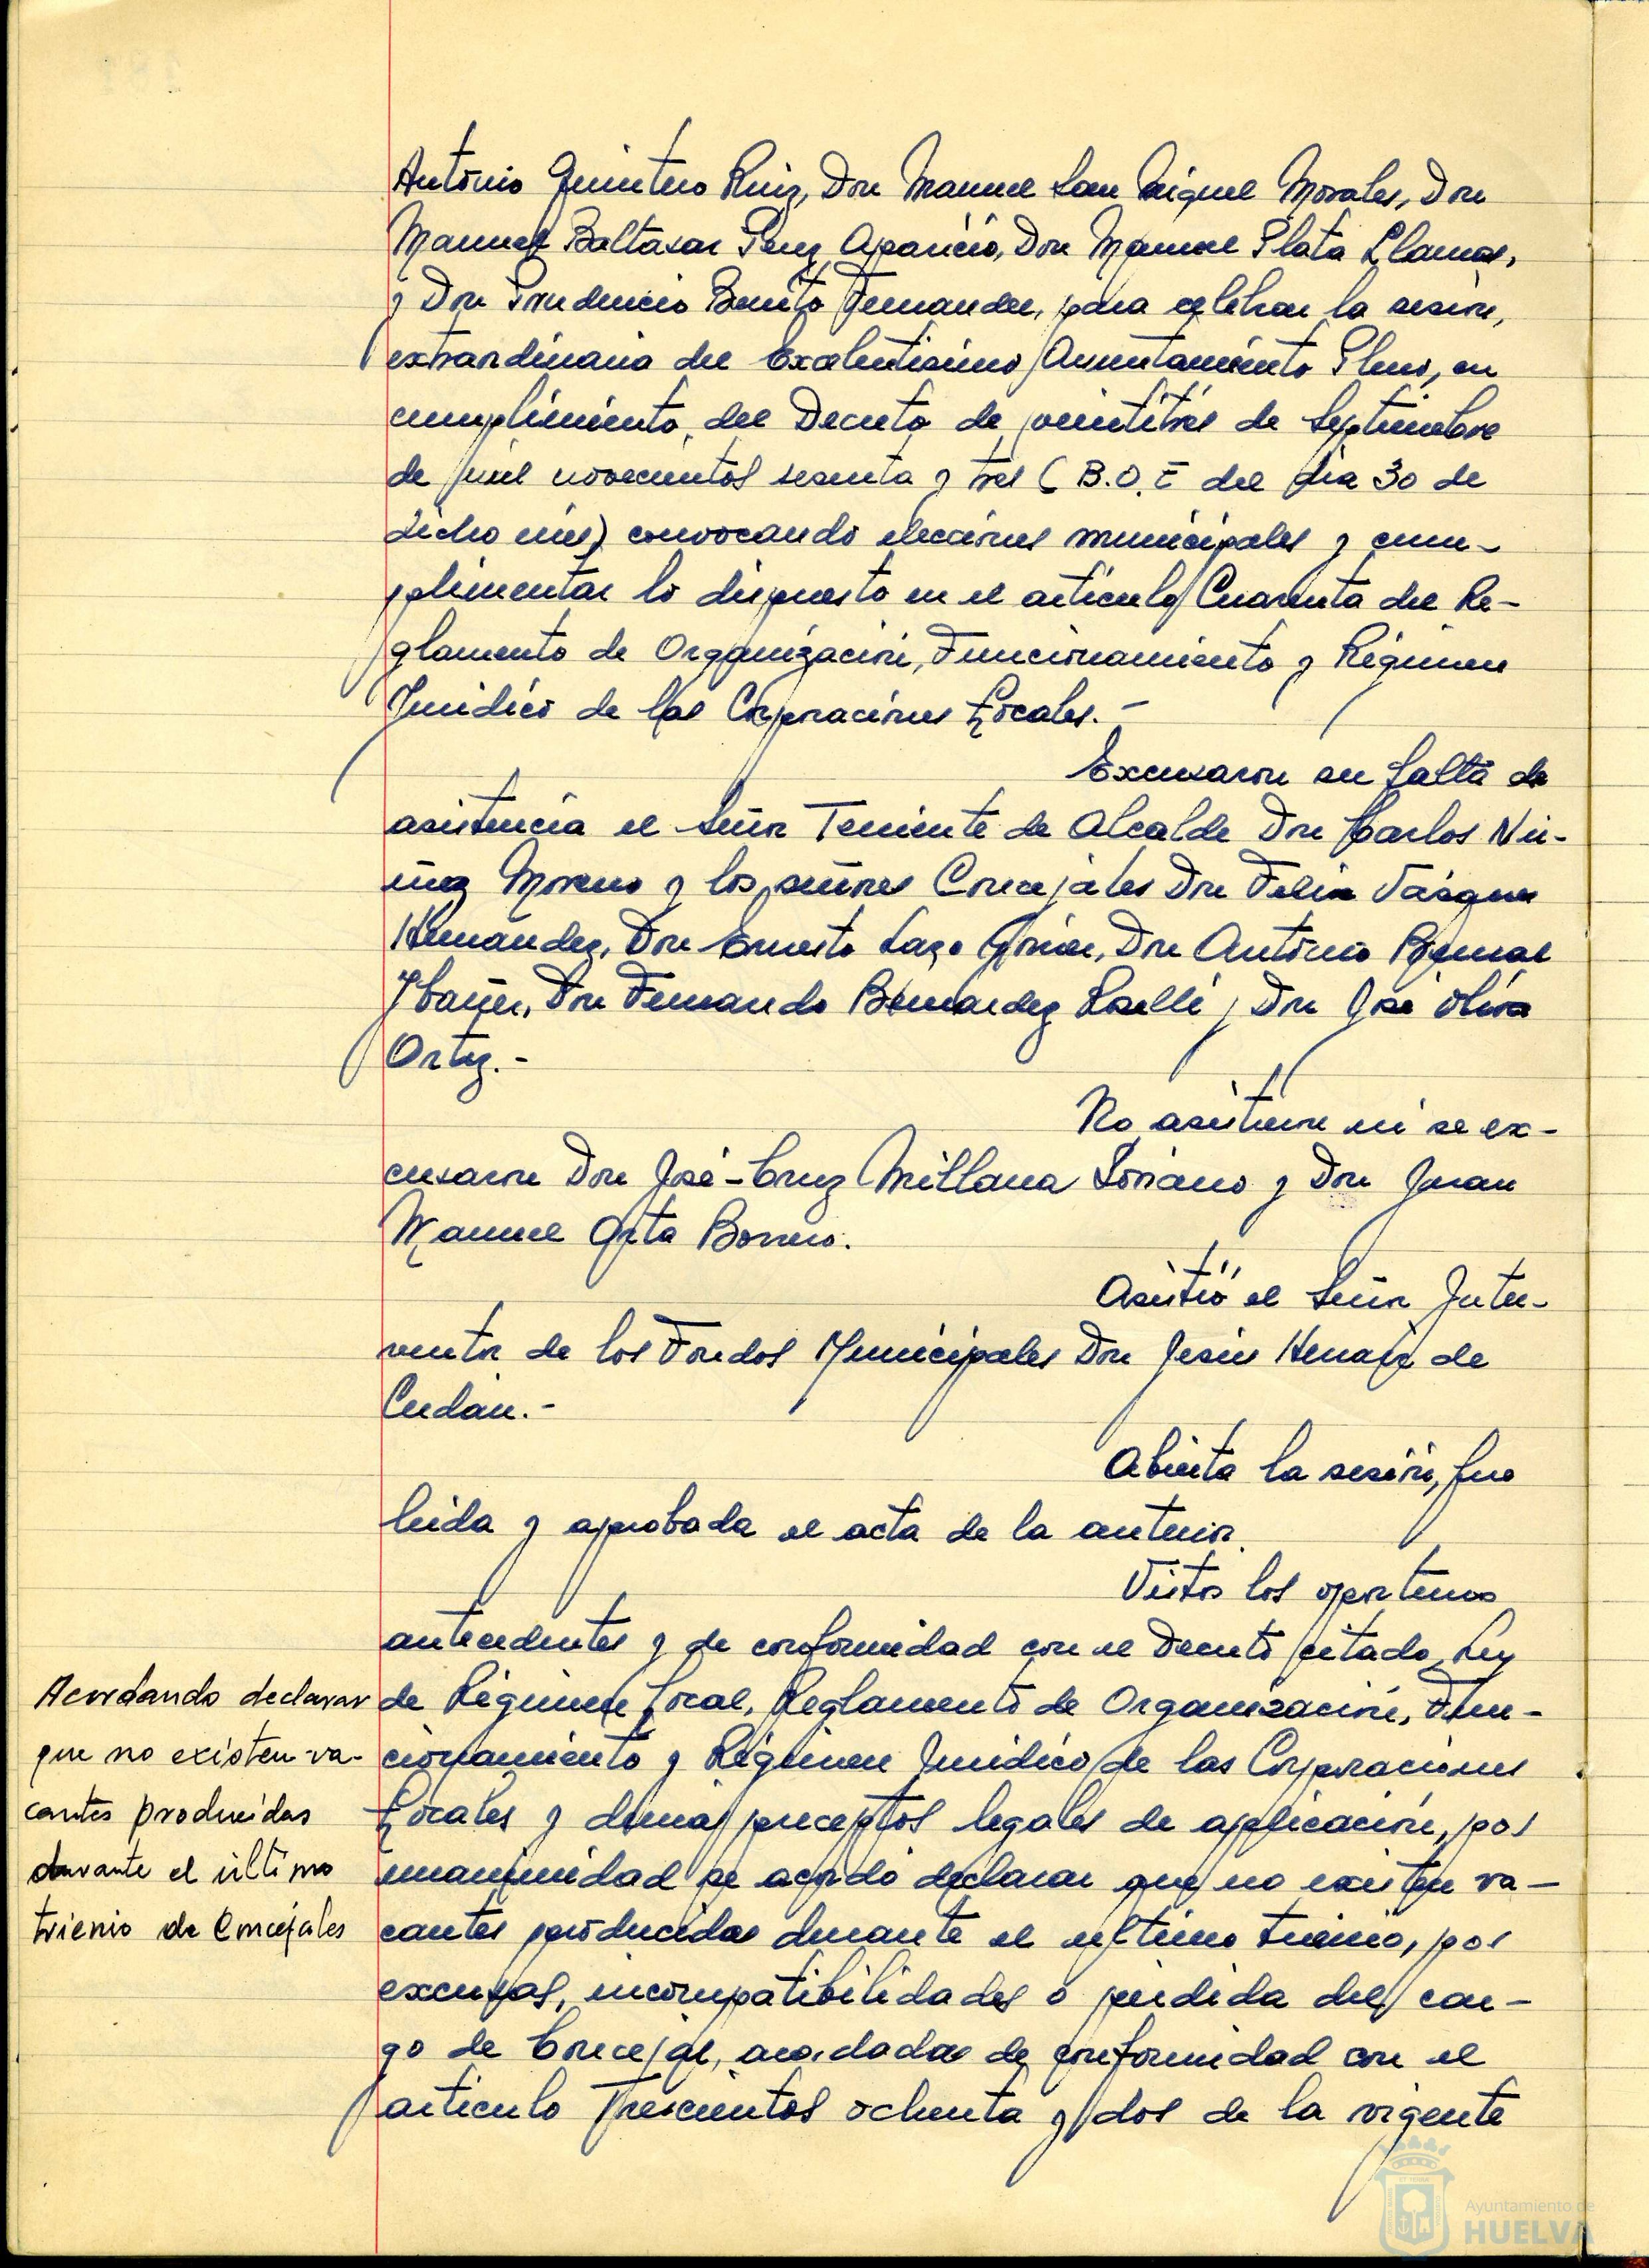 Antonio Quintero Ruiz, Don Manuel San Miguel Morales, Don
Manuel Baltasar Perez Aparicio, Don Manuel Plata Llamas,
y Don Prudencio Benito Fernandez, para celebrar la sesión,
extrardinaria del Excelentísimo Ayuntamiento Pleno, en
cumplimiento del Decreto de veintitrés de Septiembre
de mil novecientos sesenta y tres (B.O.E del día 30 de
dicho mes) convocando elecciones municipales y cum-
plimentar lo dispuesto en el artículo Cuarenta del Re-
glamento de Organización, Funcionamiento y Régimen
Jurídico de las Corporaciones Locales.-
Excusaron su falta de
asistencia el Señor Teniente de Alcalde Don Carlos Nú-
ñez Moreno y los señores Concejales Don Felix Vásquez
Hernández, Don Ernesto Lazo Don Antonio Bernal
Ybañez, Don Fernando Bernardez Roselli y Don José Oliva
Ortiz.-
No asistieron ni se ex-
cusaron Don José-Cruz Millana Soriano y Don Juan
Manuel Orta Borrero.
Asistió el Señor Inter-
ventor de los Fondos Municipales Don Jesús de
Abierta la sesión, fue
leida y aprobada el acta de la anterior.
Vistos los oportunos
antecedentes y de conformidad con el Decreto citado, Ley
de Régimen Local, Reglamento de Organización, Fun-
cionamiento y Régimen Jurídico de las Corporaciones
Locales y demás preceptos legales de aplicación, por
unanimidad se acordó declarar que no existen va-
cantes producidas durante el último trienio, por
excusas, incompatibilidades o pérdida del car-
go de Concejal, acordadas de conformidad con el
artículo Trescientos ochenta y dos de la vigente
Acordando declarar
que no existen va-
cantes producidas
durante el último
trienio de Concejales
Ayuntamiento de
HUELVA